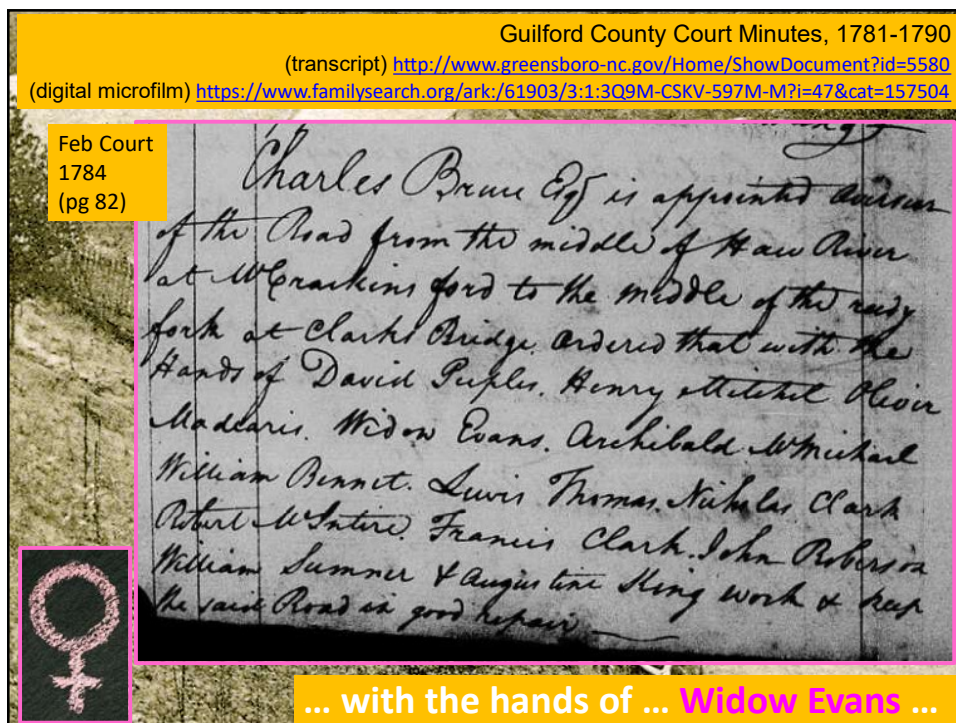 Guilford County Court Minutes, 1781-1790
(transcript) http://www.greensboro-nc.gov/Home/ShowDocument?id=5580
(digital microfilm) https://www.familysearch.org/ark:/61903/3:1:3Q9M-CSKV-597M-M?i=47&cat=157504
Feb Court
1784
(pg 82)
Charles Bruce Esqr is appointed overseer
of the Road from the middle of Haw River
at McCrackins ford to the middle of the reedy
fork at Clarks Bridge. Ordered that with the
Hands of David Peeples. Henry Mitchel Oliver
Madearis. Widow Evans. Archibald McMichael
William Bennet. Lewis Thomas. Nicholas Clark
Robert McIntire. Francis Clark. John Roberson
William Sumner & Augustine King work & keep
the said Road in good repair
... with the hands of ... Widow Evans ...